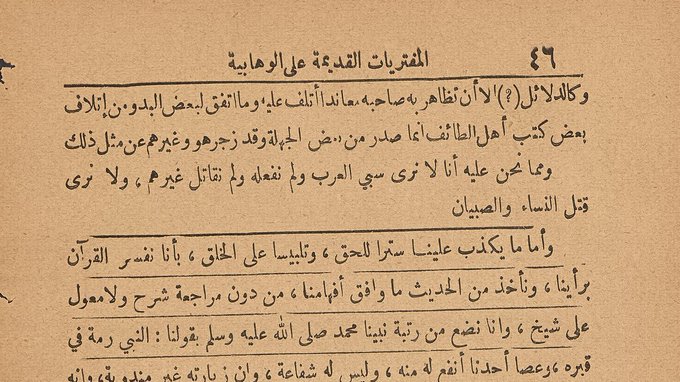 ٤٦ المفتريات القديمة على الوهابية
وكالدلائل (?) الا أن تظاهر به صاحبه معاندا أتلف عليه وما اتفق لبعض البدو من إتلاف
بعض كتب أهل الطائف انما صدر من بعض الجهلة وقد زجر هو وغيرهم عن مثل ذلك
ومما نحن عليه أنا لا نرى سبي العرب ولم نفعله ولم نقاتل غيرهم ، ولا نرى
قتل النساء والصبيان
وأما ما يكذب علينا سترا للحق ، وتلبيسا على الخلق ، بأنا نفسر القرآن
برأينا ، ونأخذ من الحديث ما وافق أفهامنا ، من دون مراجعة شرح ولا معول
على شيخ ، وانا نضع من رتبة نبينا محمد صلى الله عليه وسلم بقولنا : النبي رمة في
قبره ، وعصا أحدنا أنفع له منه ، وليس له شفاعة ، وان زيارته غير مندوبة ، وانه